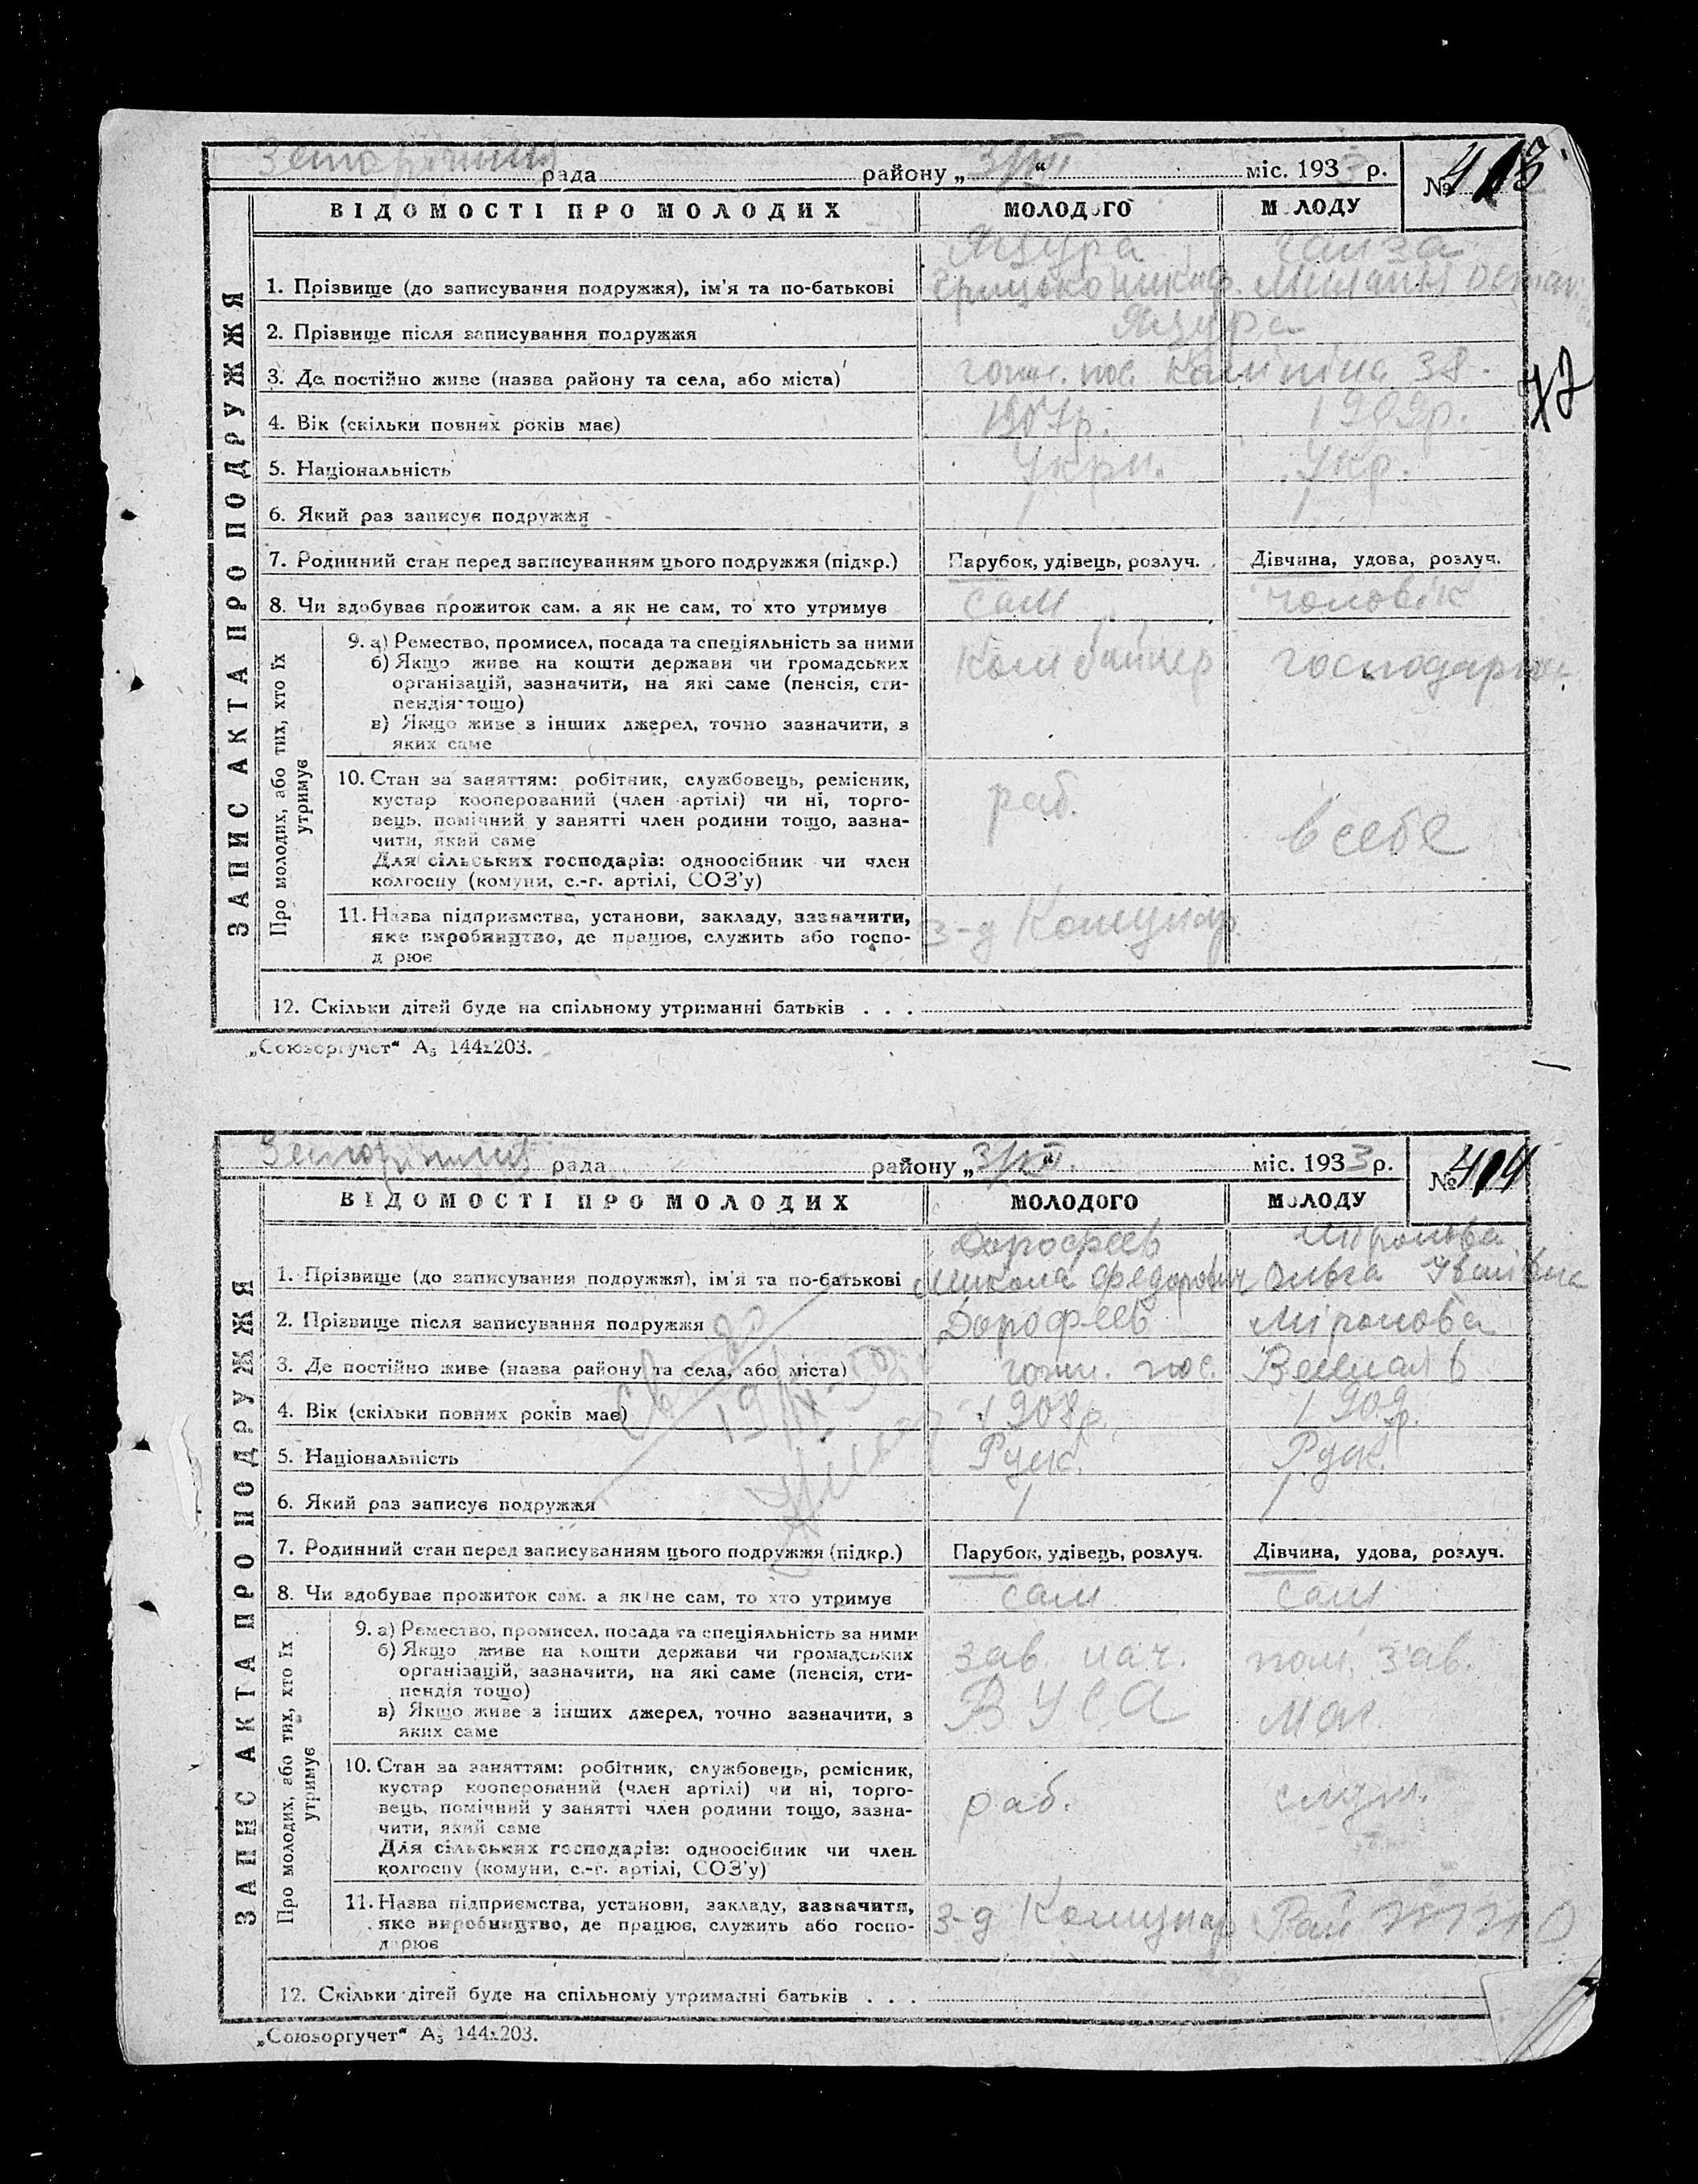 рада району „3/XII“ міс. 1933 р. № 413
ВІДОМОСТІ ПРО МОЛОДИХ МОЛОДОГО МОЛОДУ
ЗАПИС АКТА ПРО ПОДРУЖЖЯ
Яцура
1. Прізвище (до записування подружжя), ім'я та по-батькові Грицько
2. Прізвище після записування подружжя Яцура
3. Де постійно живе (назва району та села, або міста) пос. Калініна 38.
4. Вік (скільки повних років має) 1907р. 1909р.
5. Національність Укри. Укр.
6. Який раз записує подружжя 1 1
7. Родинний стан перед записуванням цього подружжя (підкр.) Парубок, удівець, розлуч. Дівчина, удова, розлуч.
8. Чи здобуває прожиток сам. а як не сам, то хто утримує сам чоловік
Про молодих, або тих, хто їх утримує
9. а) Ремество, промисел, посада та спеціяльність за ними
б) Якщо живе на кошти держави чи громадських Комбайнер
організацій, зазначити, на які саме (пенсія, сти-
пендія тощо)
в) Якщо живе з інших джерел, точно зазначити, з
яких саме
10. Стан за заняттям: робітник, службовець, ремісник,
кустар кооперований (член артілі) чи ні, торго- раб.
вець, помічний у занятті член родини тощо, зазна-
чити, який саме в себе
Для сільських господарів: одноосібник чи член
колгоспу (комуни, с.-г. артілі, СОЗ'у)
11. Назва підприємства, установи, закладу, зазначити, з-д Комунар
яке виробництво, де працює, служить або госпо-
д рює
12. Скільки дітей буде на спільному утриманні батьків . . .
„Союзоргучет“ А5 144х203.
рада району „3/XII“ міс. 1933 р. № 414
ВІДОМОСТІ ПРО МОЛОДИХ МОЛОДОГО МОЛОДУ
ЗАПИС АКТА ПРО ПОДРУЖЖЯ
Дорофеев Міронова
1. Прізвище (до записування подружжя), ім'я та по-батькові Микола Федорович Ольга Іванівна
2. Прізвище після записування подружжя Дорофеев Міронова
3. Де постійно живе (назва району та села, або міста) пос.
4. Вік (скільки повних років має) 1908р. 1909р.
5. Національність Руск. Руск.
6. Який раз записує подружжя 1 1
7. Родинний стан перед записуванням цього подружжя (підкр.) Парубок, удівець, розлуч. Дівчина, удова, розлуч.
8. Чи здобуває прожиток сам. а як не сам, то хто утримує сам сам
Про молодих, або тих, хто їх утримує
9. а) Ремество, промисел, посада та спеціяльність за ними
б) Якщо живе на кошти держави чи громадських зав. нач. пом. зав.
організацій, зазначити, на які саме (пенсія, сти-
пендія тощо)
в) Якщо живе з інших джерел, точно зазначити, з
яких саме
10. Стан за заняттям: робітник, службовець, ремісник,
кустар кооперований (член артілі) чи ні, торго- раб.
вець, помічний у занятті член родини тощо, зазна-
чити, який саме
Для сільських господарів: одноосібник чи член
колгоспу (комуни, с.-г. артілі, СОЗ'у)
11. Назва підприємства, установи, закладу, зазначити, з-д Комунар
яке виробництво, де працює, служить або госпо-
дарює
12. Скільки дітей буде на спільному утриманні батьків . . .
„Союзоргучет“ А5 144х203.